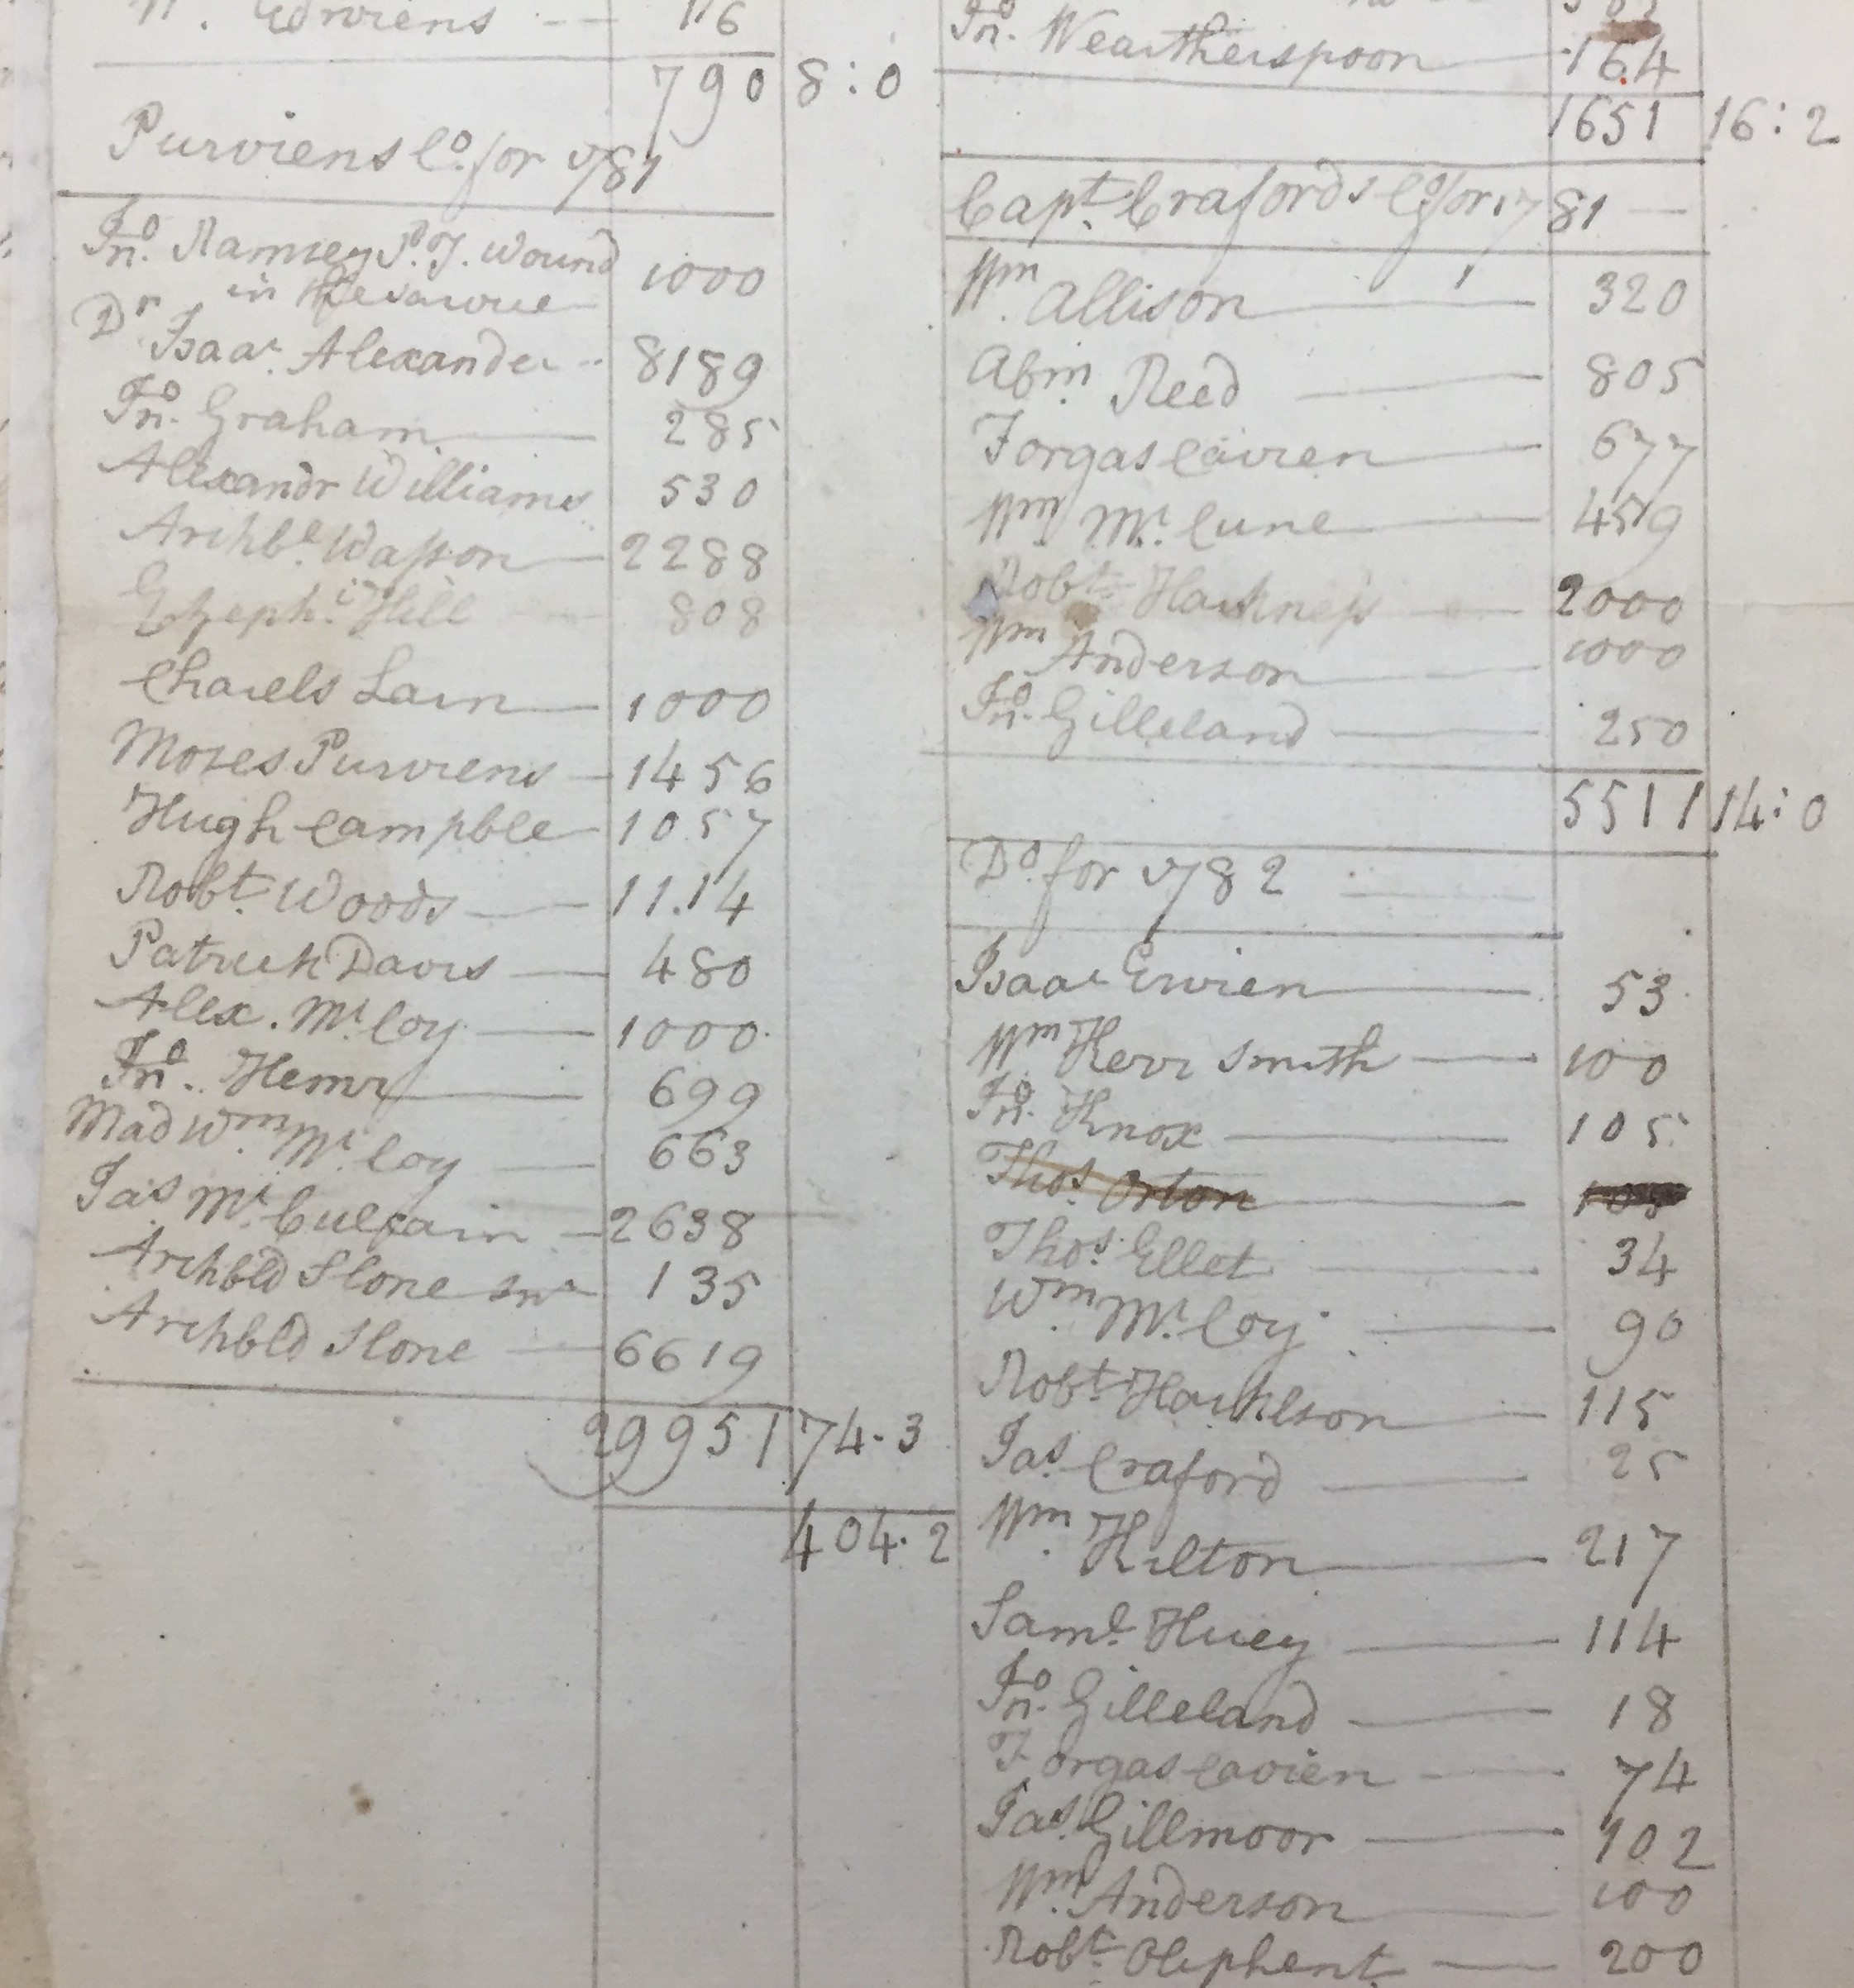 790 8:0
Purviens Co. for 1781
Jno. Ramsey P.T. wound 1000
in
Dr Isaac Alexander 8189
Jno. Graham 285
Alexandr Williams 530
Archbl. Wasson 2288
Ezeph. Hill 808
Charels Lain 1000
Moses Purviens 1456
Hugh Campble 1057
Robt. Woods 11.14
Patrick Davis 480
Alex. Mc.Coy 1000
Jno. Henry 699
Mad Wm. Mc.Coy 663
Jas Mc.Culfain 2638
Archbld Slone Snr 135
Archbld Slone 6619
29951 74.3
404.2
Jno. Weartherspoon 164
1651 16:2
Capt. Crafords Co for 1781
Wm. Allison 320
Abm. Reed 805
Forgas Cavien 677
Wm. Mc.Cune 459
Robt. Harkness 2000
Wm. Anderson 1000
Jno. Gilleland 250
5511 14:0
Do. for 1782
Isaac Ervien 53
Wm Kerr Smith 100
Jno. Knox 105
Thos. Orton 105
Thos. Ellet 34
Wm. Mc.Coy 90
Robt. Harkleson 115
Jas. Craford 25
Wm. Hilton 217
Saml. Huey 114
Jno. Gilleland 18
Forgas Cavien 74
Jas. Gillmoor 102
Wm. Anderson 100
Robt. Olephent 200